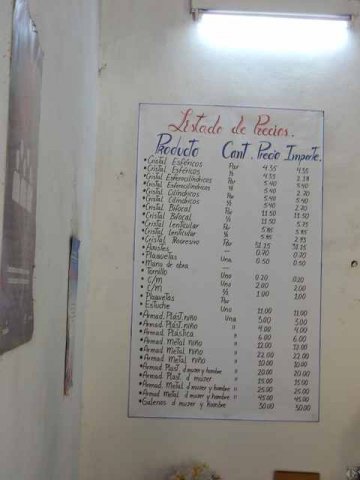 Listado de Precios.
Producto Cant. Precio Importe.
• Cristal Esféricos Par 4.35 4.35
• Cristal Esféricos ½ 4.35 2.18
• Cristal Esferocilíndricos Par 5.40 5.40
• Cristal Esferocilíndricos ½ 5.40 2.70
• Cristal Cilíndricos Par 5.40 5.40
• Cristal Cilíndricos ½ 5.40 2.70
• Cristal Bifocal Par 11.50 11.50
• Cristal Bifocal ½ 11.50 5.75
• Cristal Lenticular Par 5.85 5.85
• Cristal Lenticular ½ 5.85 2.93
• Cristal Progresivo Par 31.25 31.25
• Ajustes 0.20 0.20
• Plaquetas Una 0.50 0.50
• Mano de obra
• Tornillo Uno 0.20 0.20
• C/M Una 2.00 2.00
• C/M ½ 1.00 1.00
• Plaquetas
• Estuche Uno 11.00 11.00
• Armad. Plást. niño Una 3.00 3.00
• Armad. Plást. niño " 4.00 4.00
• Armad. Plástica " 6.00 6.00
• Armad. Metal niño " 12.00 12.00
• Armad. Metal niño " 22.00 22.00
• Armad. Metal niño " 10.00 10.00
• Armad. Plast. d mujer y hombre " 20.00 20.00
• Armad. Plast. d mujer " 15.00 15.00
• Armad. Metal d mujer " 25.00 25.00
• Armad. Metal d mujer y hombre " 45.00 45.00
• d mujer y hombre " 30.00 30.00